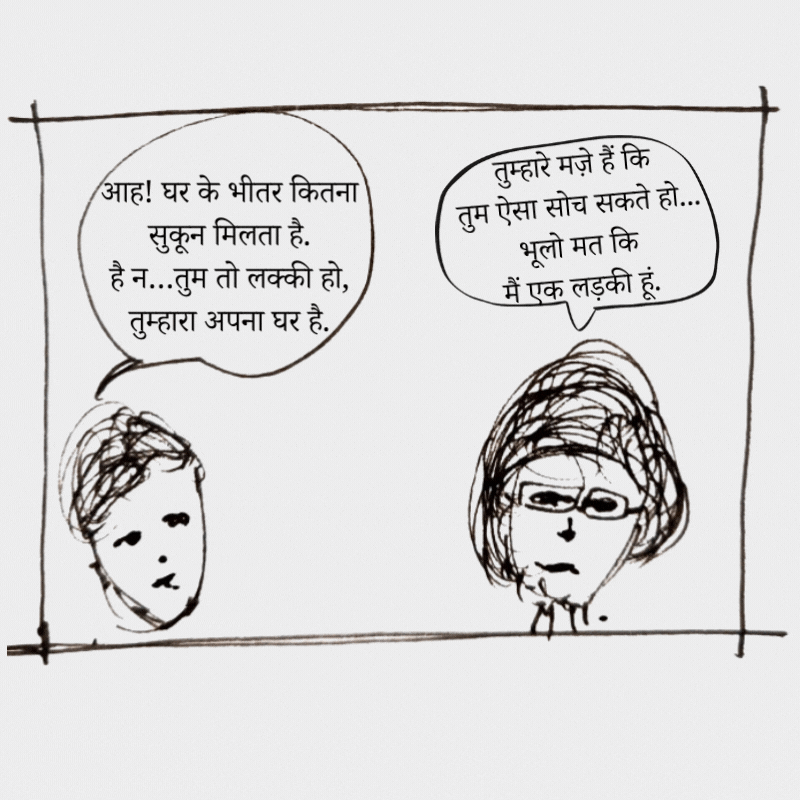 आह! घर के भीतर कितना
सुकून मिलता है.
है न...तुम तो लक्की हो,
तुम्हारा अपना घर है.
तुम्हारे मज़े हैं कि
तुम ऐसा सोच सकते हो...
भूलो मत कि
मैं एक लड़की हूं.